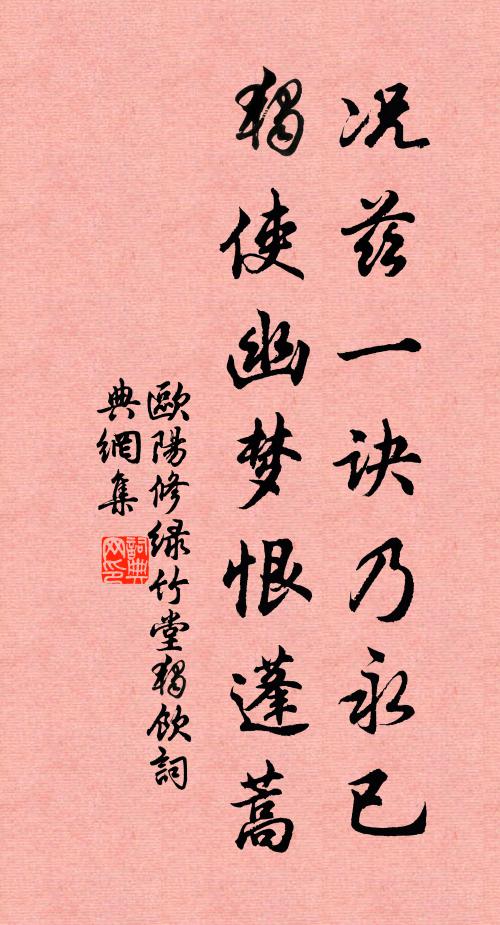 况兹一诀乃永已
独使幽梦恨蓬蒿
歐陽修绿竹堂独飲詞
典網集
詞典
网印